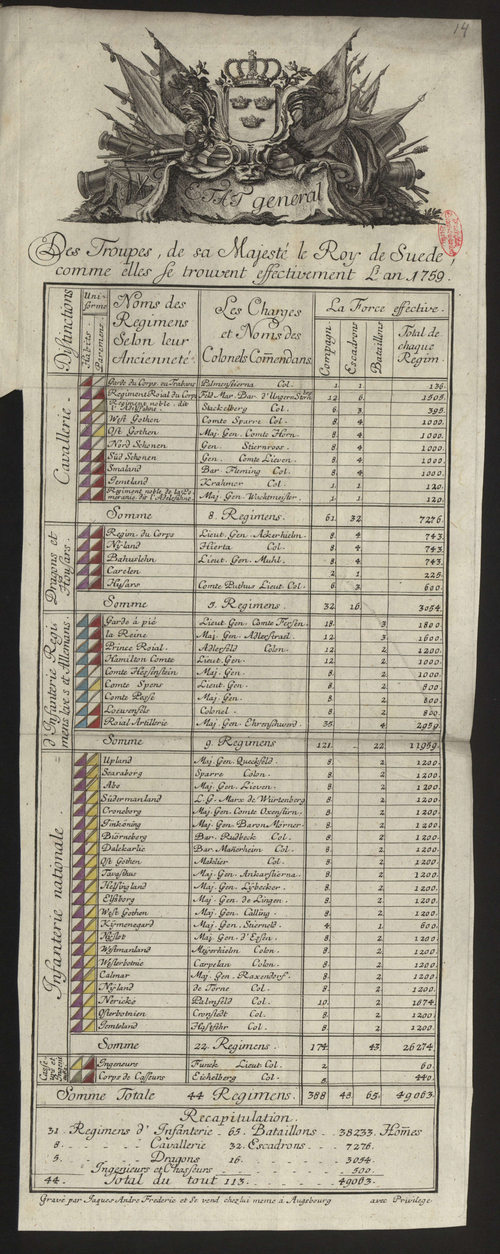 14
ETAT general
Des Troupes, de sa Majesté le Roy de Suede,
comme elles se trouvent effectivement L'an 1759.
Distinctions
Uniforme
Habits.
Paremens.
Noms des Regimens Selon leur Ancienneté.
Les Charges et Noms des Colonels Com̄endans
La Force effective.
Compagn.
Escadrons
Bataillons
Total de chaque Regim.
Cavallerie.
Garde du Corps, ou Trabans Palmstierna Col. 1. 1. 136.
Regiment Roial du Corps 12. 6. 1505.
Regiment noble, dit l'Adelsfahne. Stackelberg Col. 6. 3. 395.
West Gothen Comte Sparre Col. 8. 4. 1000.
Ost Gothen Maj. Gen. Comte Horn. 8. 4. 1000.
Nord Schonen Gen. Stiernroos. 8. 4. 1000.
Süd Schonen Gen. Comte Lieven. 8. 4. 1000.
Smaland Bar. Fleming Col. 8. 4. 1000.
Jemtland Krahmer Col. 1. 1. 120.
Regiment noble de la Pomeranie dit l'Adelsfahne. Maj. Gen. Wachtmeister. 1. 1. 120.
Somme 8. Regimens. 61. 32. 7276.
Dragons et Housars.
Regim. du Corps Lieut. Gen. Ackerhielm. 8. 4. 743.
Nyland Hierta Col. 8. 4. 743.
Bahuslehn Lieut. Gen. Muhl. 8. 4. 743.
Carelen 2. 1. 225.
Husars Comte Putbus Lieut. Col. 6. 3. 600.
Somme 5. Regimens. 32. 16. 3054.
d'Infanterie Regimens levés et Allemans.
Garde à pié Lieut. Gen. Comte Fersen. 18. 3. 1800.
la Reine Maj. Gen. Adlerstrael. 12. 3. 1600.
Prince Roial. Adlerfeld Colon. 12. 2. 1200.
Hamilton Comte Lieut. Gen. 12. 2. 1000.
Comte Hessenstein Maj. Gen. 8. 2. 1000.
Comte Spens Lieut. Gen. 8. 2. 800.
Comte Posse Maj. Gen. 8. 2. 800.
Loewenfels Colonel. 8. 2. 800.
Roial Artillerie Maj. Gen. Ehrenschwerd. 35. 4. 2959.
Somme 9. Regimens 121. 22. 11959.
Infanterie nationale.
Upland Maj. Gen. Queckfeld. 8. 2. 1200.
Scaraborg Sparre Colon. 8. 2. 1200.
Abo Maj. Gen. Lieven. 8. 2. 1200.
Südermanland L. G. Marx de Würtenberg 8. 2. 1200.
Croneberg Maj. Gen. Comte Oxenstirn. 8. 2. 1200.
Jinköning Maj. Gen. Baron Mörner. 8. 2. 1200.
Biörneberg Bar. Rudbeck Col. 8. 2. 1200.
Dalekarlie Bar. Man̄erheim Col. 8. 2. 1200.
Ost Gothen Col. 8. 2. 1200.
Tavasthus Maj. Gen. Ankarstierna. 8. 2. 1200.
Helsingland Maj. Gen. Lybecker. 8. 2. 1200.
Elfsborg Maj. Gen. de Lingen. 8. 2. 1200.
West Gothen Maj. Gen. Calling. 8. 2. 1200.
Kymenegard Maj. Gen. Stierneld. 4. 1. 600.
Nyslot Maj. Gen. d'Essen. 8. 2. 1200.
Westmanland Meyerhielm Colon. 8. 2. 1200.
Westerbotnie Carpelan Colon. 8. 2. 1200.
Calmar Maj. Gen. Raxendorf. 8. 2. 1200.
Nyland de Torne Col. 8. 2. 1200.
Nericke Palmfeld Col. 10. 2. 1674.
Osterbotnien Cronstedt Col. 8. 2. 1200.
Jemteland Hastfehr Col. 8. 2. 1200.
Somme 22 Regimens. 174. 43. 26274.
Ingenieurs Funck Lieut. Col. 2. 60.
Corps de Casseurs Eichelberg Col. 440.
Somme Totale 44 Regimens. 388 48 65. 49063.
Recapitulation.
31. Regimens d'Infanterie 65. Bataillons 38233. Hom̄es
8. Cavallerie 32. Escadrons 7276.
5. Dragons 16. 3054.
Ingenieurs et Chasseurs 500.
44. Total du tout 113. 49063.
Gravé par Jaques Andre Frederic et se vend chez lui meme à Augsbourg avec Privilege.